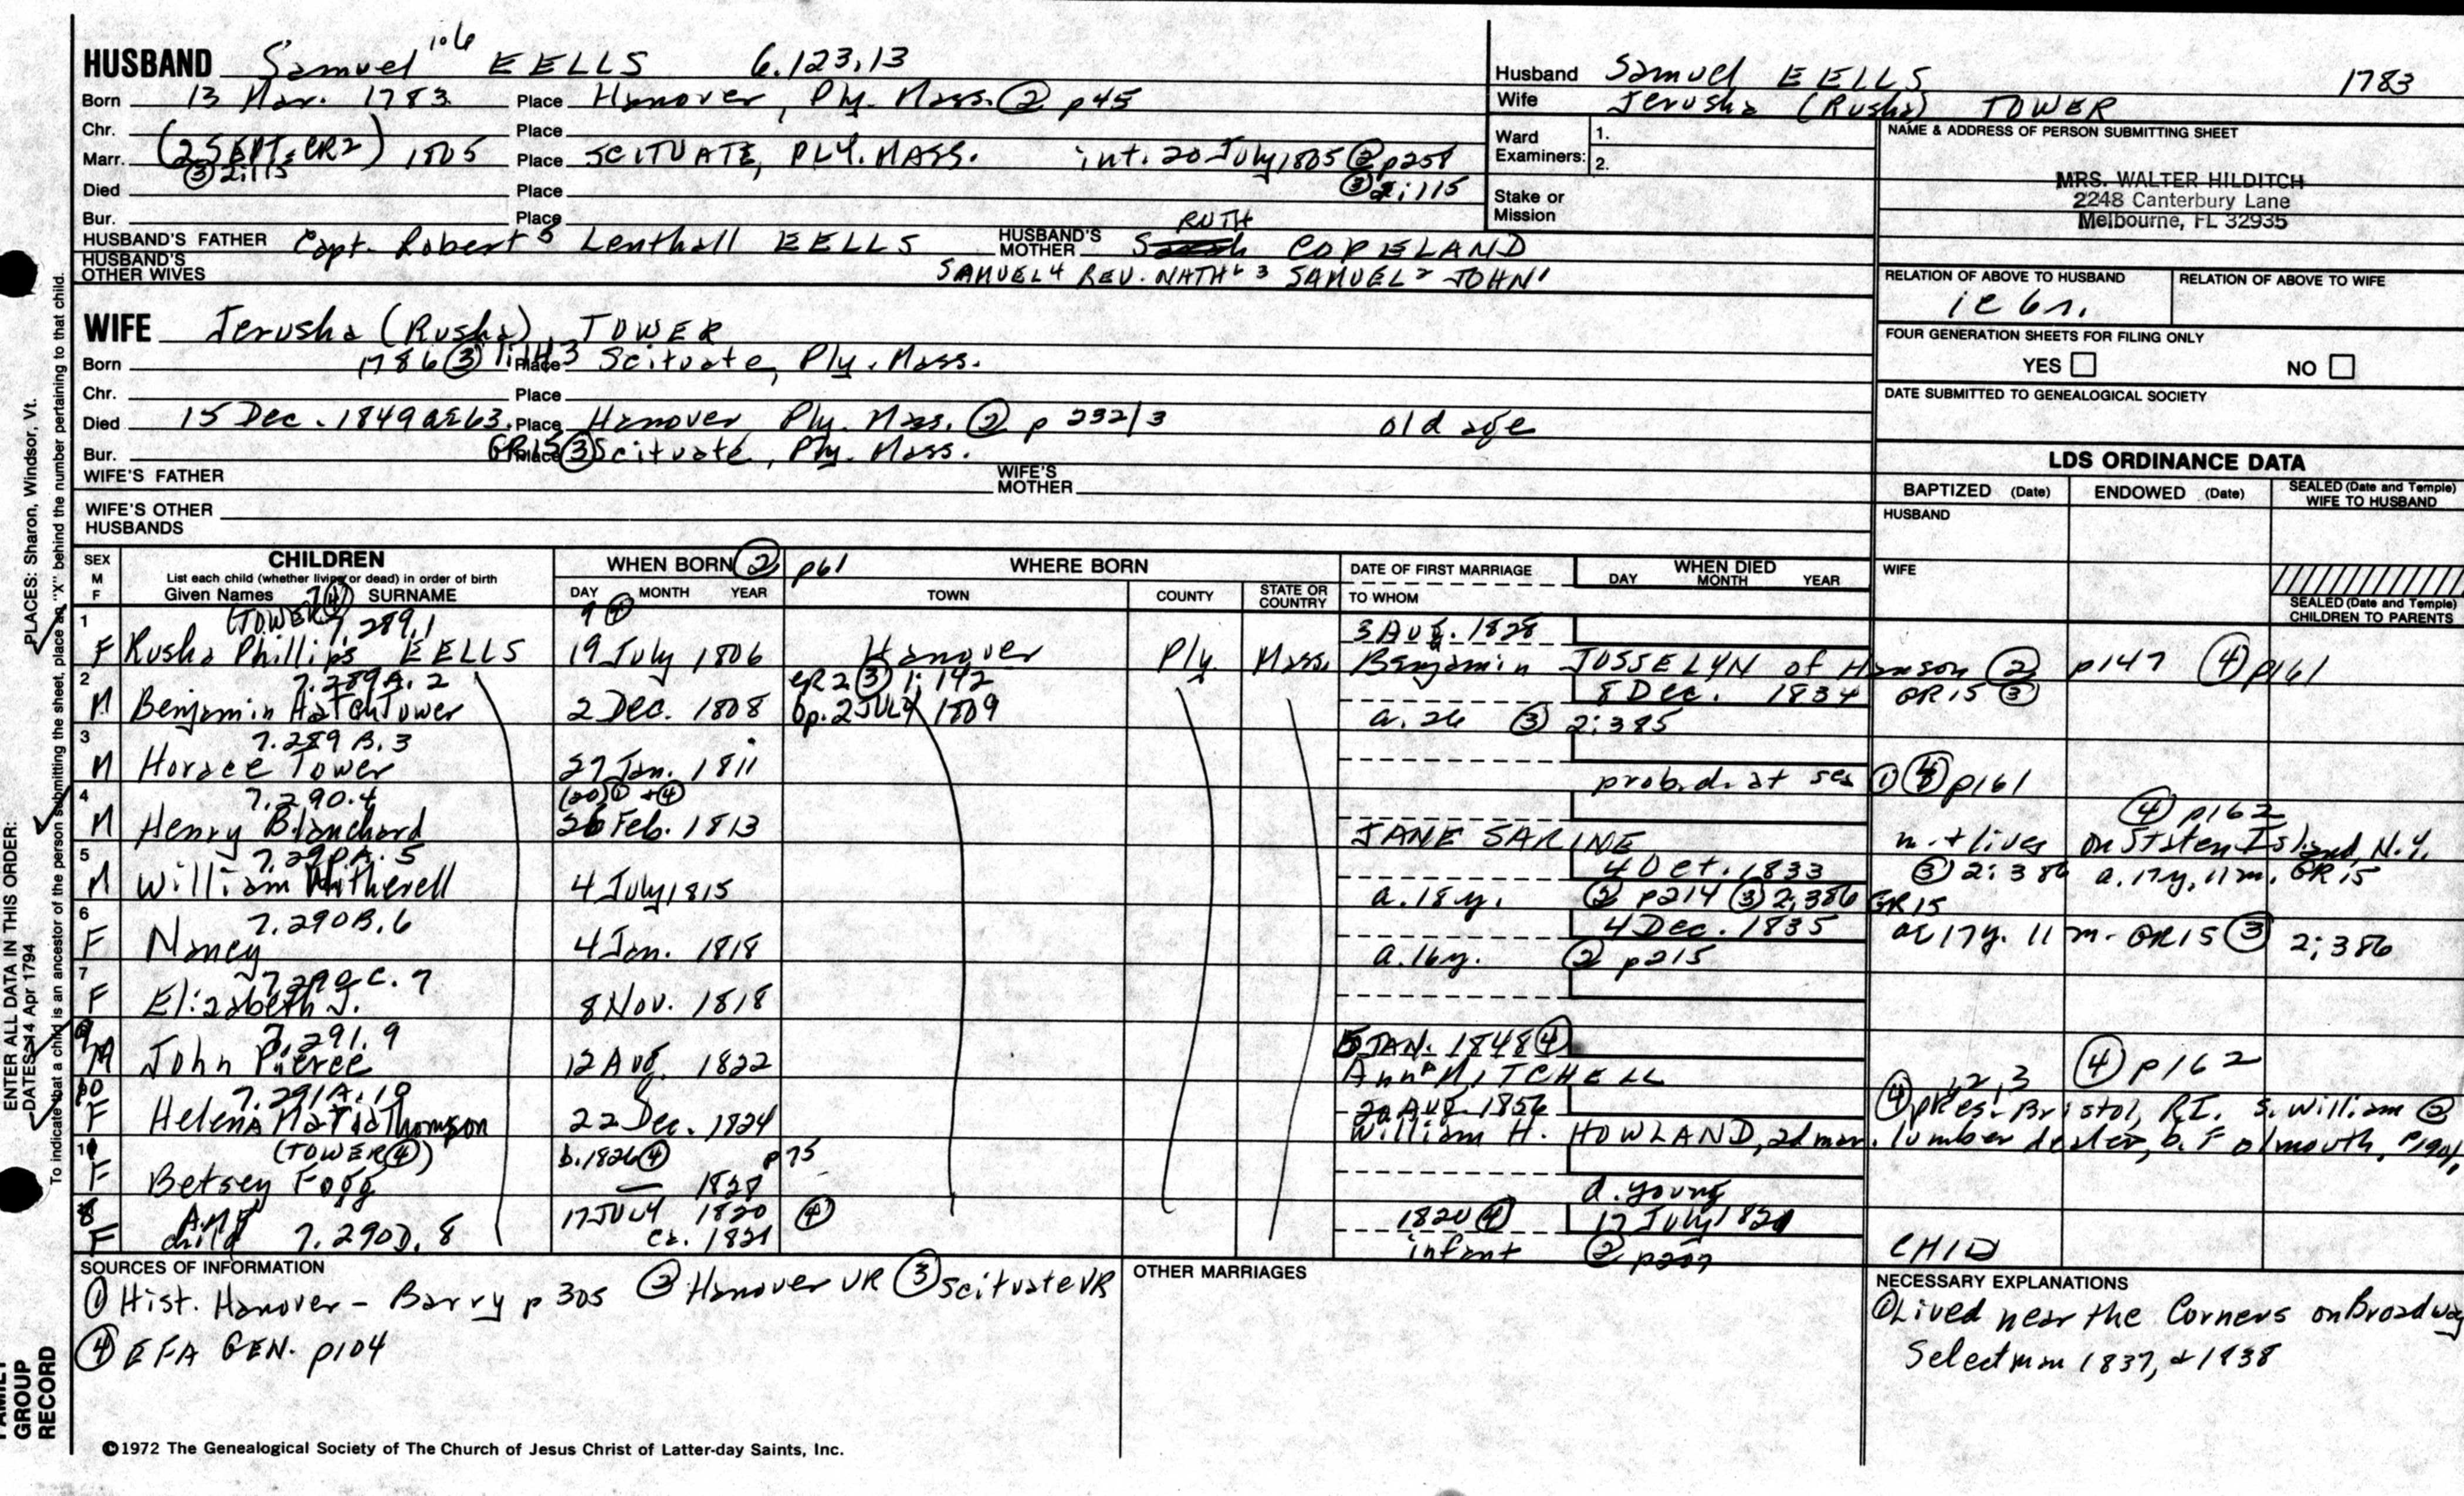 HUSBAND Samuel EELLS 6.123.13
Born 13 Mar. 1783 Place Hanover, Ply. Mass. ② p45
Chr. Place
Marr. (2 SEPT. CR2) 1805 Place SCITUATE, PLY. MASS. int. 20 July 1805 ② p258
③ 2:115 ③ 2:115
Died Place
Bur. Place
RUTH
HUSBAND'S FATHER Capt. Robert 5 Lenthall EELLS HUSBAND'S MOTHER COPELAND
HUSBAND'S OTHER WIVES SAMUEL 4 REV. NATH 3 SAMUEL 2 JOHN 1
WIFE Jerusha (Rusha) TOWER
Born 1786 ③ Place Scituate, Ply. Mass.
Chr. Place
Died 15 Dec. 1849 ae 63. Place Hanover Ply. Mass. ② p 232/3 old age
Bur. GR15 Place ③ Scituate, Ply. Mass.
WIFE'S FATHER WIFE'S MOTHER
WIFE'S OTHER HUSBANDS
Husband Samuel EELLS 1783
Wife Jerusha (Rusha) TOWER
Ward Examiners: 1.
2.
Stake or Mission
NAME & ADDRESS OF PERSON SUBMITTING SHEET
MRS. WALTER HILDITCH
2248 Canterbury Lane
Melbourne, FL 32935
RELATION OF ABOVE TO HUSBAND RELATION OF ABOVE TO WIFE
FOUR GENERATION SHEETS FOR FILING ONLY
YES NO
DATE SUBMITTED TO GENEALOGICAL SOCIETY
LDS ORDINANCE DATA
BAPTIZED (Date) ENDOWED (Date) SEALED (Date and Temple) WIFE TO HUSBAND
HUSBAND
WIFE
SEALED (Date and Temple) CHILDREN TO PARENTS
SEX M F CHILDREN WHEN BORN ② p61 WHERE BORN DATE OF FIRST MARRIAGE WHEN DIED
List each child (whether living or dead) in order of birth
Given Names SURNAME DAY MONTH YEAR TOWN COUNTY STATE OR COUNTRY TO WHOM DAY MONTH YEAR
1 (TOWER ④) 7.289.1 9 ④ 3 Aug. 1828
F Rusha Phillips EELLS 19 July 1806 Hanover Ply Mass. Benjamin JOSSELYN of Hanson ② p147 ④ p161
2 7.289A.2 CR2 ③ 1:142 8 Dec. 1834 GR15 ③
M Benjamin Hatch Tower 2 Dec. 1808 bp. 2 JULY 1809 a. 26 ③ 2:385
3 7.289B.3
M Horace Tower 27 Jan. 1811 prob. d. at sea ① ④ p161
4 7.290.4 (20) ① + ④ ④ p162
M Henry Blanchard 26 Feb. 1813 JANE SARINE m. + lives on Staten Island, N.Y.
5 7.290A.5 4 Oct. 1833 ③ 2:386 a. 17 y, 11 m. GR15
M William Witherell 4 July 1815 a. 18 y. ② p214 ③ 2:386 GR15
6 7.290B.6 4 Dec. 1835 ae 17 y. 11 m. GR15 ③ 2:386
F Nancy 4 Jan. 1818 a. 16 y. ② p215
7 7.290C.7
F Elizabeth J. 8 Nov. 1818
9 7.291.9 5 JAN. 1848 ④
M John Pierce 12 Aug. 1822 Ann P MITCHELL ④ p162
10 7.291A.10 20 AUG. 1856 Bristol, RI. s. William
F Helena Maria Thomson 22 Dec. 1824 William H. HOWLAND, 2d mar. lumber dealer, b. Falmouth,
(TOWER ④) b. 1826 ④ p75
F Betsey Fogg 1828 d. young
8 17 JULY 1820 ④ 1820 ④ 17 July 1821
F child 7.290D.8 ca. 1821 infant ② p207
SOURCES OF INFORMATION
① Hist. Hanover - Barry p 305 ② Hanover VR ③ Scituate VR
④ EFA GEN. p104
OTHER MARRIAGES
NECESSARY EXPLANATIONS
① Lived near the Corners on Broadway
Selectman 1837, + 1838
©1972 The Genealogical Society of The Church of Jesus Christ of Latter-day Saints, Inc.
ENTER ALL DATA IN THIS ORDER:
PLACES: Sharon, Windsor, Vt.
DATES: 14 Apr 1794
To indicate that a child is an ancestor of the person submitting the sheet, place an "X" behind the number pertaining to that child.
FAMILY GROUP RECORD